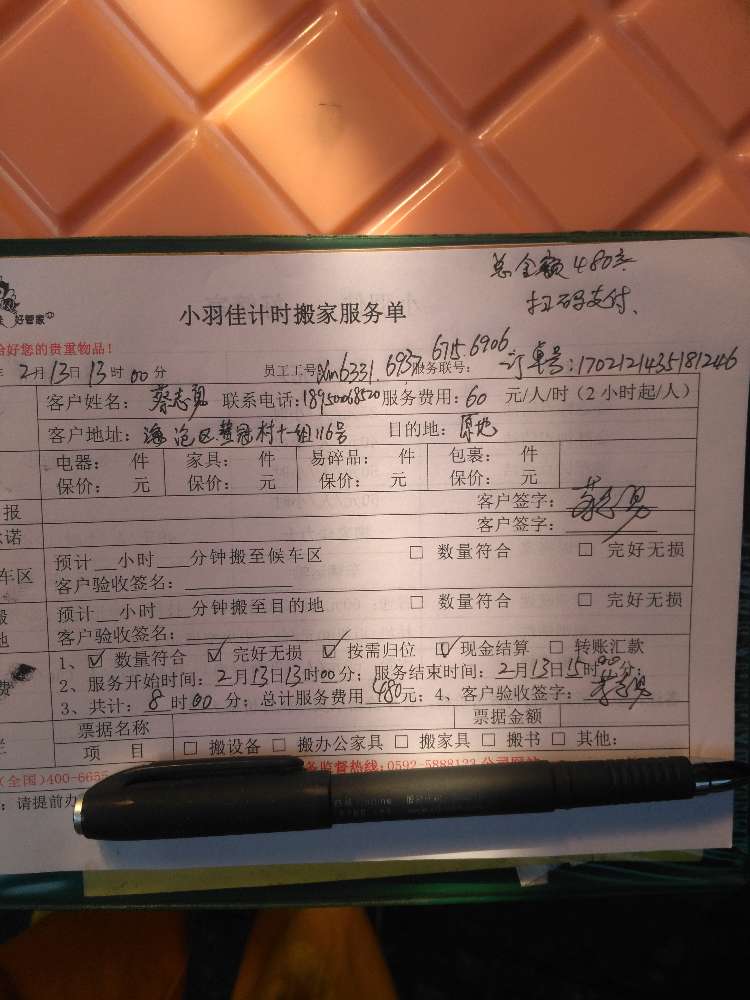 总金额480元
扫码支付、
好管家
小羽佳计时搬家服务单
好您的贵重物品！
年 2月13日13时00分 员工工号xm6331.6937.675.6906 服务联号： 订单号:1702121435181246
客户姓名：蔡志勇 联系电话:18950068520 服务费用:60 元/人/时（2 小时起/人）
客户地址：海沧区 村十一组116号 目的地：原地
电器： 件 家具： 件 易碎品： 件 包裹： 件
保价： 元 保价： 元 保价： 元 保价： 元
报 客户签字：蔡志勇
诺 客户签字：
预计__小时___分钟搬至候车区 □ 数量符合 □ 完好无损
车区 客户验收签名：
预计__小时___分钟搬至目的地 □ 数量符合 □ 完好无损
地 客户验收签名：
1、☑ 数量符合 ☑ 完好无损 ☑ 按需归位 ☑ 现金结算 □ 转账汇款
2、服务开始时间：2月13日13时00分；服务结束时间：2月13日15时00分；
费 3、共计：8 时00 分；总计服务费用 480元；4、客户验收签字：蔡志勇
票据名称 票据金额
项 目 □ 搬设备 □ 搬办公家具 □ 搬家具 □ 搬书 □ 其他：
(全国)400-6655 监督热线:0592-5888133
：请提前办